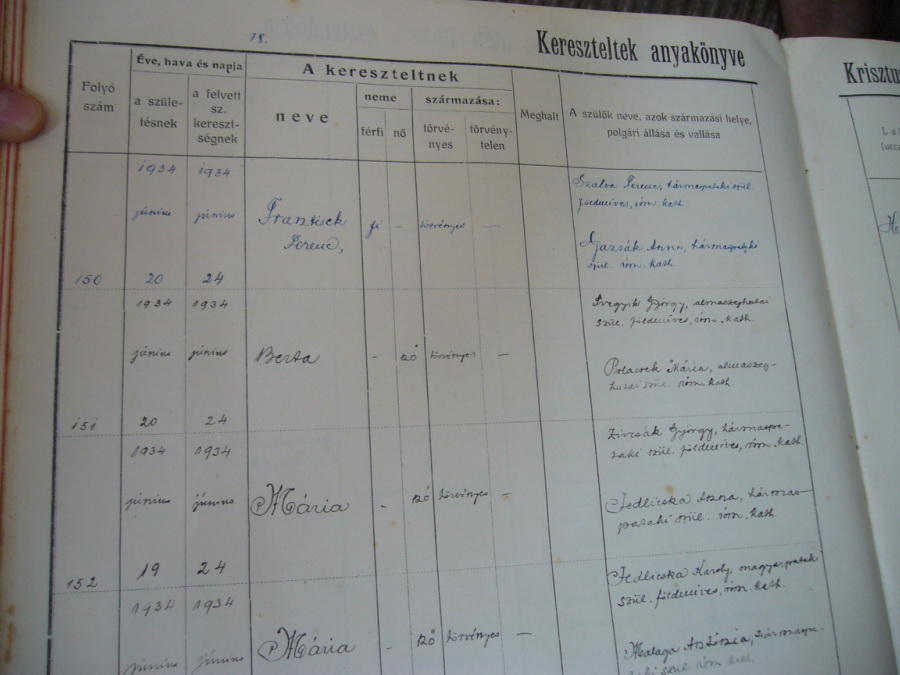 78.
Kereszteltek anyakönyve
Krisztus
Folyó szám
Éve, hava és napja
a születésnek
a felvett sz. keresztségnek
A kereszteltnek
neve
neme
férfi
nő
származása:
törvényes
törvénytelen
Meghalt
A szülők neve, azok származási helye, polgári állása és vallása
150
1934 június 20
1934 június 24
Ferenc,
fi
-
törvényes
—
Szalva Ferenc, hármaspataki szül.
földmíves, róm. kath.
Anna, hármaspataki
szül. róm. kath.
151
1934 június 20
1934 június 24
Berta
-
nő
törvényes
—
György, almaszeghutai
szül. földmíves, róm. kath.
Polacsek Mária, almaszeg-
hutai szül. róm. kath.
152
1934 június 19
1934 június 24
Mária
-
nő
törvényes
—
Zivcsák György, hármaspa-
taki szül. földmíves, róm. kath
Jedlicska Anna, hármas-
pataki szül. róm. kath
1934 június
1934 június
Mária
-
nő
törvényes
—
Jedlicska Karoly, magyarpataki
szül. földmíves, róm. kath.
Malaga Antónia, hármaspa-
taki szül. róm. kath